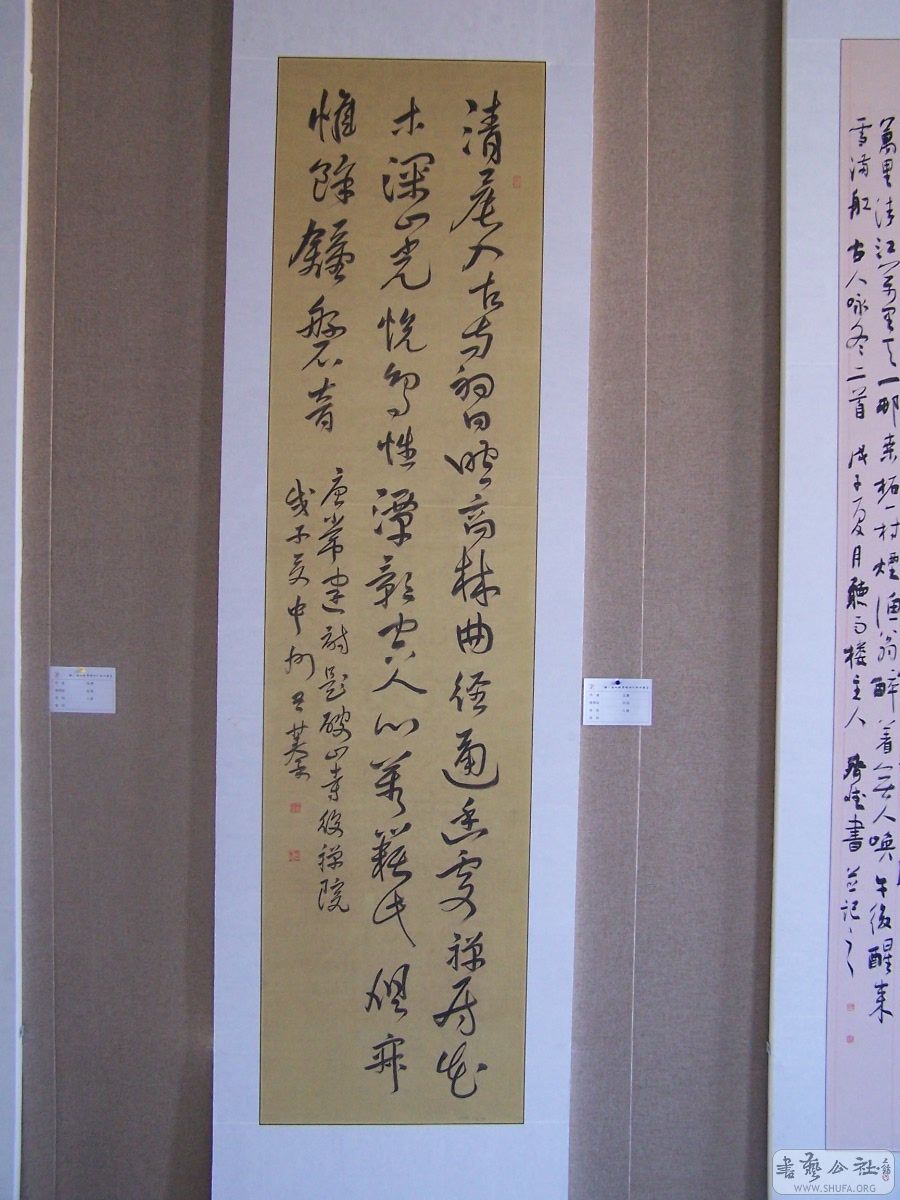 清晨入古寺初日照高林曲径通幽處禅房花
木深山光悦鸟性潭影空人心萬籁此俱寂
惟餘鐘磬音
唐常建詩題破山寺後禅院
戊子夏中州
萬里清江萬里天一邨桑柘一村煙漁翁醉着無人唤午後醒来
雪满船 古人咏冬二首 戊子夏月聽雨楼主人 書並記之
書藝公社
WWW.SHUFA.ORG